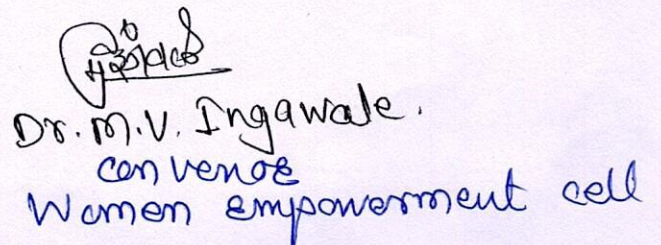 Dr. M.V. Ingawale.
convenor
Women empowerment cell